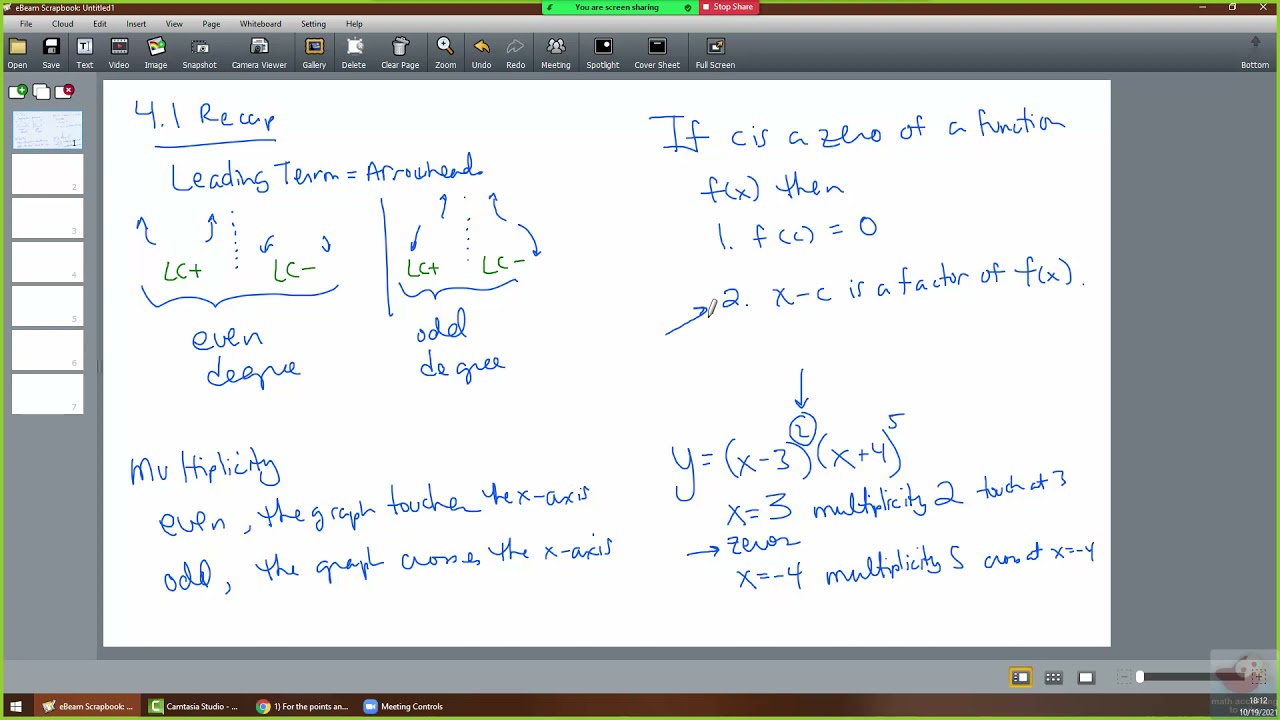 eBeam Scrapbook: Untitled1
You are screen sharing
Stop Share
File Cloud Edit Insert View Page Whiteboard Setting Help
Open Save Text Video Image Snapshot Camera Viewer Gallery Delete Clear Page Zoom Undo Redo Meeting Spotlight Cover Sheet Full Screen Bottom
1
2
3
4
5
6
7
4.1 Recap
Leading Term = Arrowheads
LC+ LC- LC+ LC-
even degree
odd degree
Multiplicity
even, the graph touches the x-axis
odd, the graph crosses the x-axis
If c is a zero of a function
f(x) then
1. f(c) = 0
2. x-c is a factor of f(x).
y = (x-3)^2 (x+4)^5
x=3 multiplicity 2 touch at 3
→ zeros
x=-4 multiplicity 5 cross at x=-4
eBeam Scrapbook: ... Camtasia Studio - ... 1) For the points an... Meeting Controls
18:12
10/19/2021